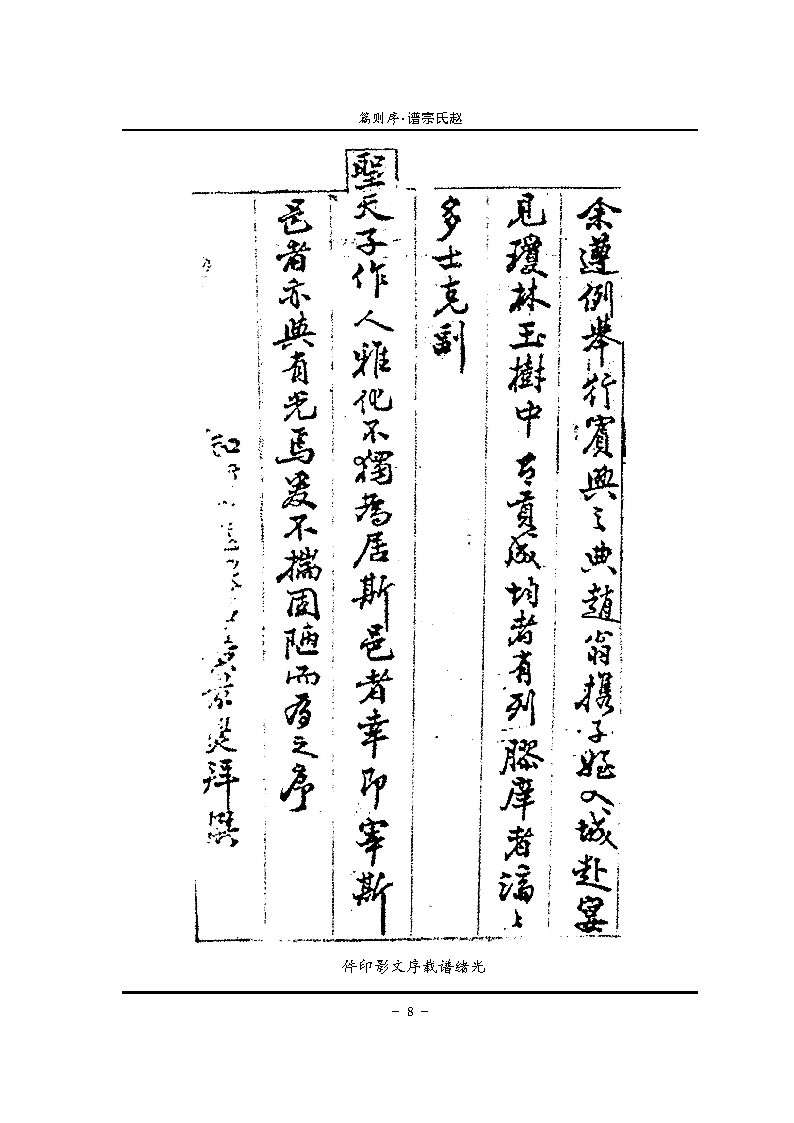 篇则序·谱宗氏赵
余遵例舉行賓興之典趙翁携子姪入城赴宴
見瓊林玉樹中有貢成均者有列膠庠者濟々
多士克副
聖天子作人雅化不獨為居斯邑者幸即宰斯
邑者亦與有光焉爰不揣固陋而為之序
拜撰
件印影文序载谱绪光
- 8 -